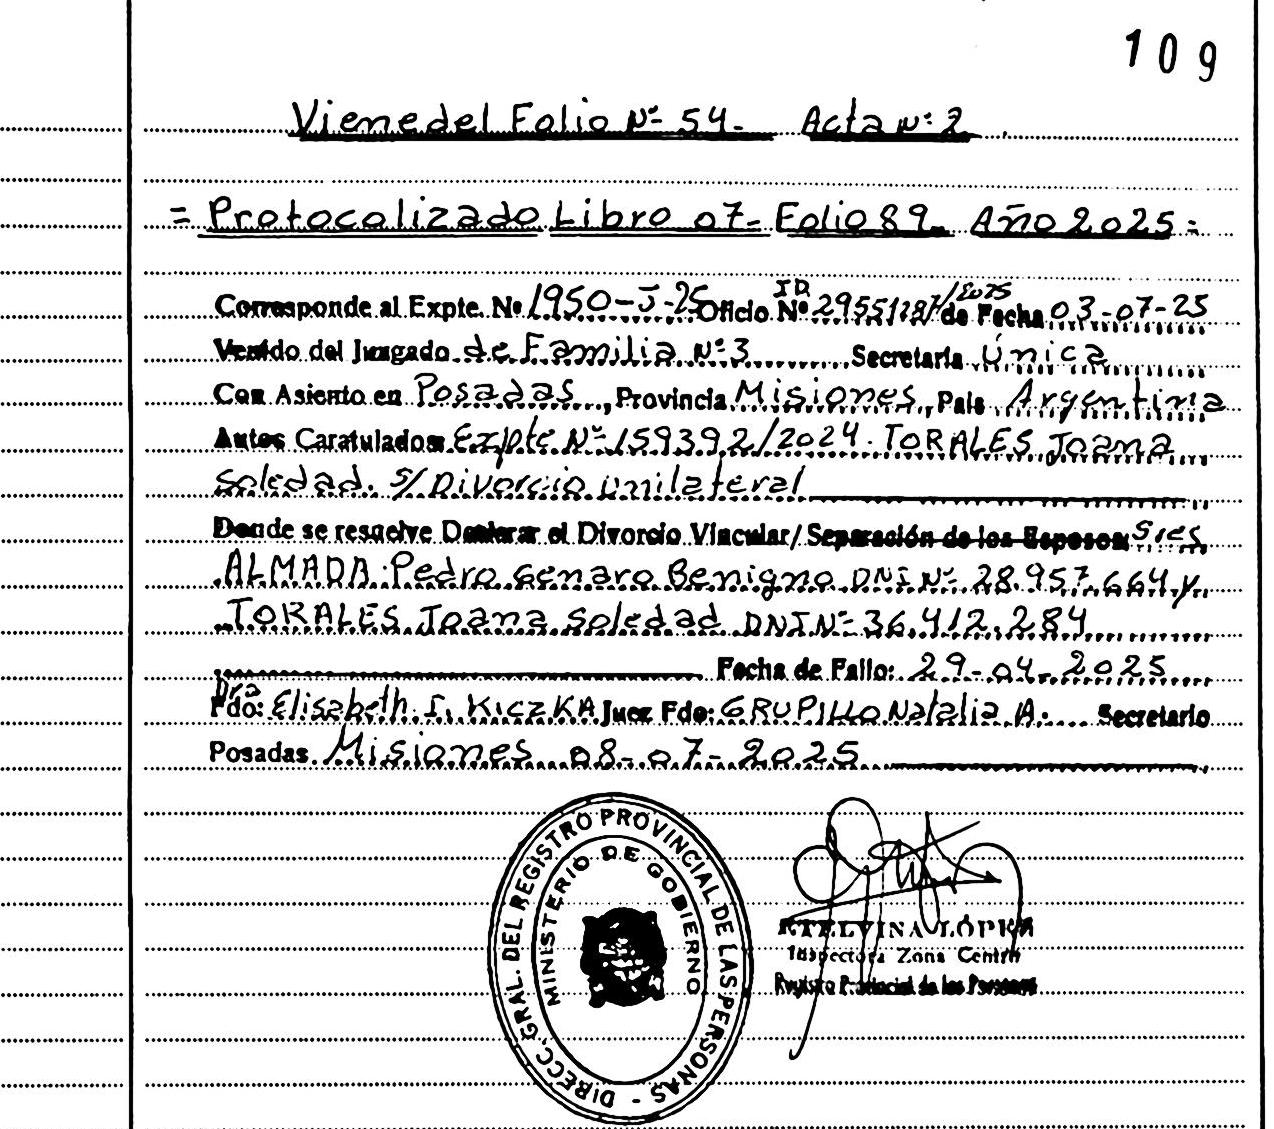 109
Viene del Folio Nº 54. Acta Nº: 2
= Protocolizado Libro 07- Folio 89. Año 2025 =
Corresponde al Expte. Nº 1950-J-25 Oficio ID Nº 29551787/2025 de Fecha 03-07-25
Venido del Juzgado de Familia Nº 3 Secretaría Única
Con Asiento en Posadas, Provincia Misiones, País Argentina
Autos Caratulados Expte Nº 159392/2024. TORALES Joana
Soledad. s/ Divorcio unilateral
Donde se resuelve Declarar el Divorcio Vincular/ Separación de los Esposos Sres
ALMADA Pedro Genaro Benigno DNI Nº 28.957.664 y
TORALES Joana Soledad DNI Nº 36.412.284
Fecha de Fallo: 29-04-2025
Dra
Fdo: Elisabeth I. KICZKA Juez Fdo: GRUPILLO Natalia A. Secretario
Posadas Misiones 08-07-2025
DIRECC. GRAL. DEL REGISTRO PROVINCIAL DE LAS PERSONAS -
MINISTERIO DE GOBIERNO
ETELVINA LÓPEZ
Inspectora Zona Centro
Registro Provincial de las Personas